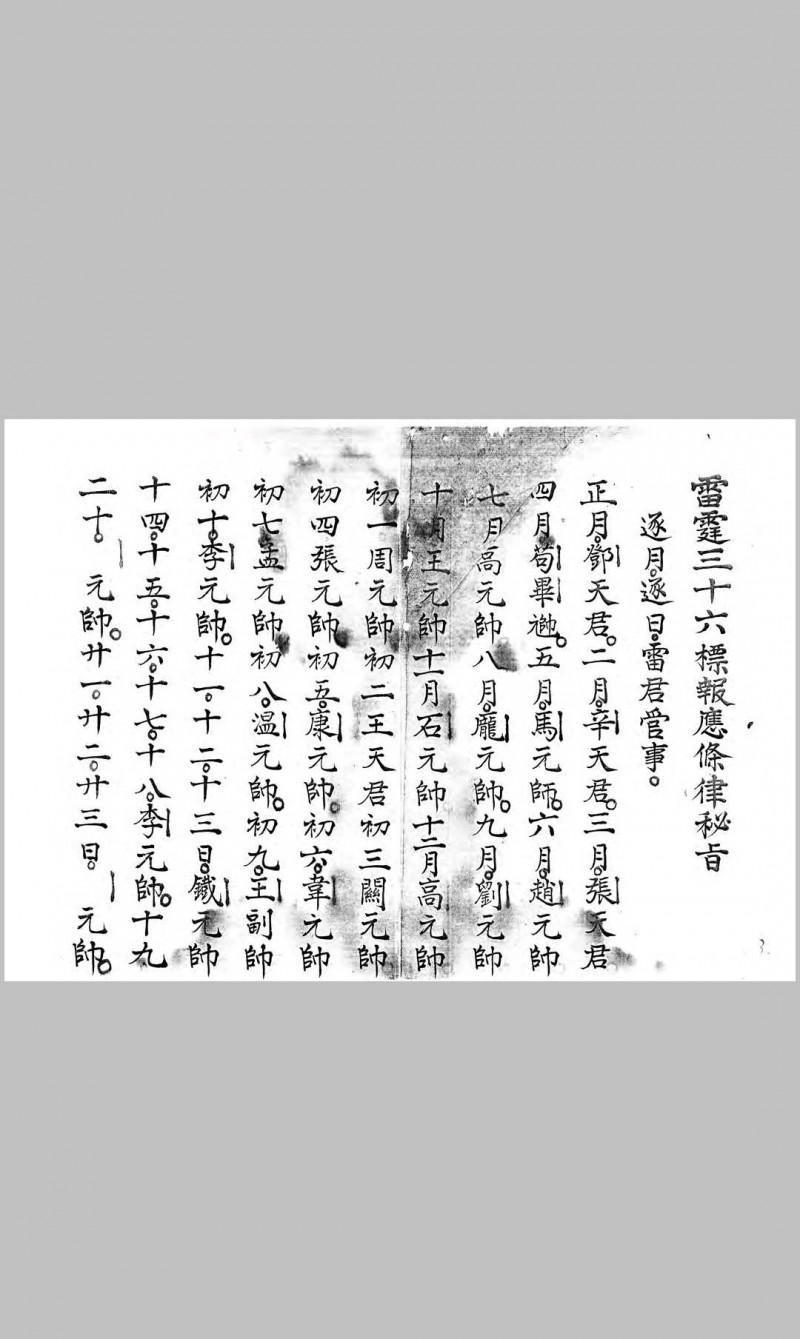 雷霆三十六標報應條律秘旨
逐月。逐日。雷君管事。
正月。鄧天君。二月。辛天君。三月。張天君
四月。苟畢。五月。馬元帥。六月。趙元帥
七月高元帥八月。龐元帥。九月。劉元帥
十月王元帥十一月石元帥十二月高元帥
初一周元帥初二王天君初三關元帥
初四張元帥初五。康元帥。初六。韋元帥
初七孟元帥初八。温元帥。初九。王副帥
初十。李元帥。十一。十二。十三日。鐵元帥
十四。十五。十六。十七。十八。李元帥。十九
二十。元帥。廿一。廿二。廿三日。元帥。